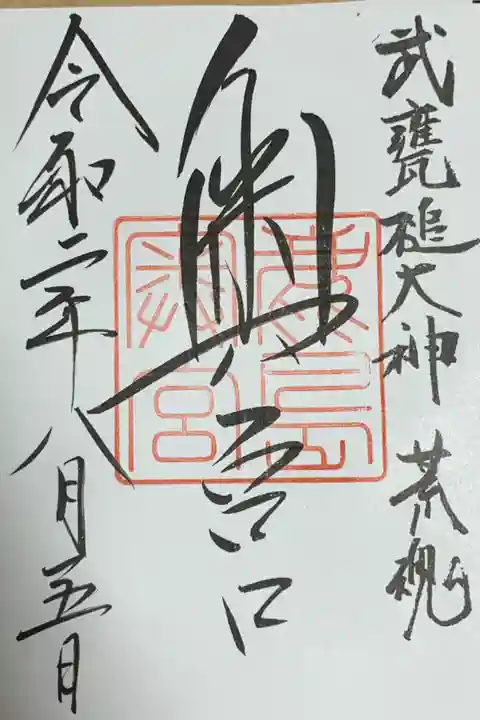 武甕槌大神 荒魂
奥宮
鹿島
奥宮
令和二年八月五日